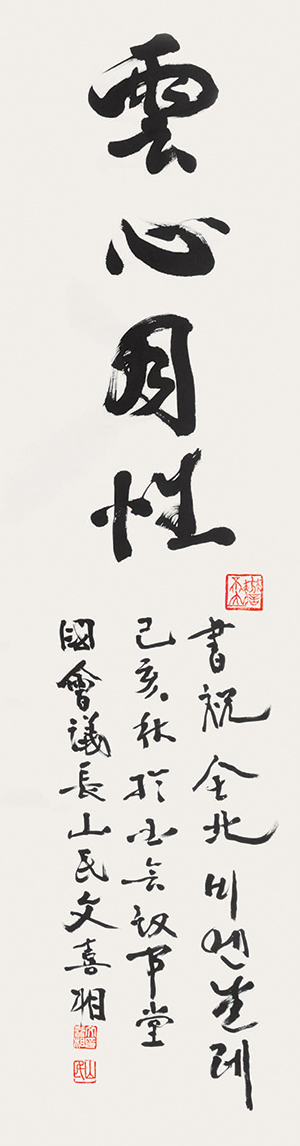 雲心月性
書祝 全北 비엔날레
己亥秋 於國會議事堂
國會議長 山民 文喜相